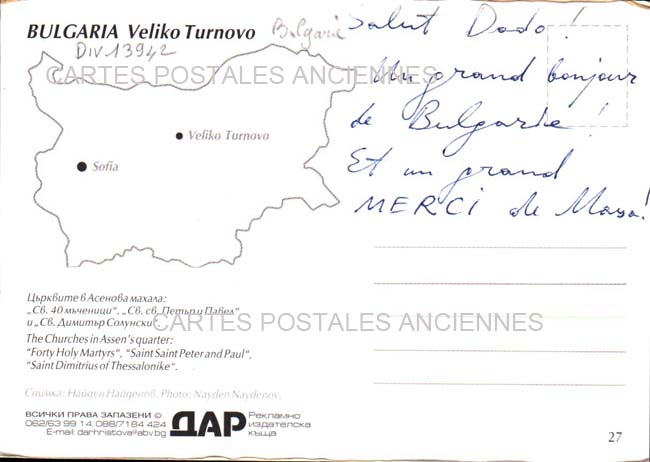 BULGARIA Veliko Turnovo
Bulgarie
DIV 13942
CARTES POSTALES ANCIENNES
Veliko Turnovo
Sofia
Salut Dado !
Un grand bonjour
de Bulgarie !
Et un grand
MERCI de Masa!
Църквите в Асенова махала:
„Св. 40 мъченици“, „Св. св. Петър и Павел“
и „Св. Димитър Солунски“
CARTES POSTALES ANCIENNES
The Churches in Assen's quarter:
“Forty Holy Martyrs“, “Saint Saint Peter and Paul“,
“Saint Dimitrius of Thessalonike“.
Снимка: Найден Найденов. Photo: Nayden Naydenov.
ВСИЧКИ ПРАВА ЗАПАЗЕНИ ©
062/63 99 14, 088/7184 424
E-mail: darhristova@abv.bg
ДАР
Рекламно
издателска
къща
27